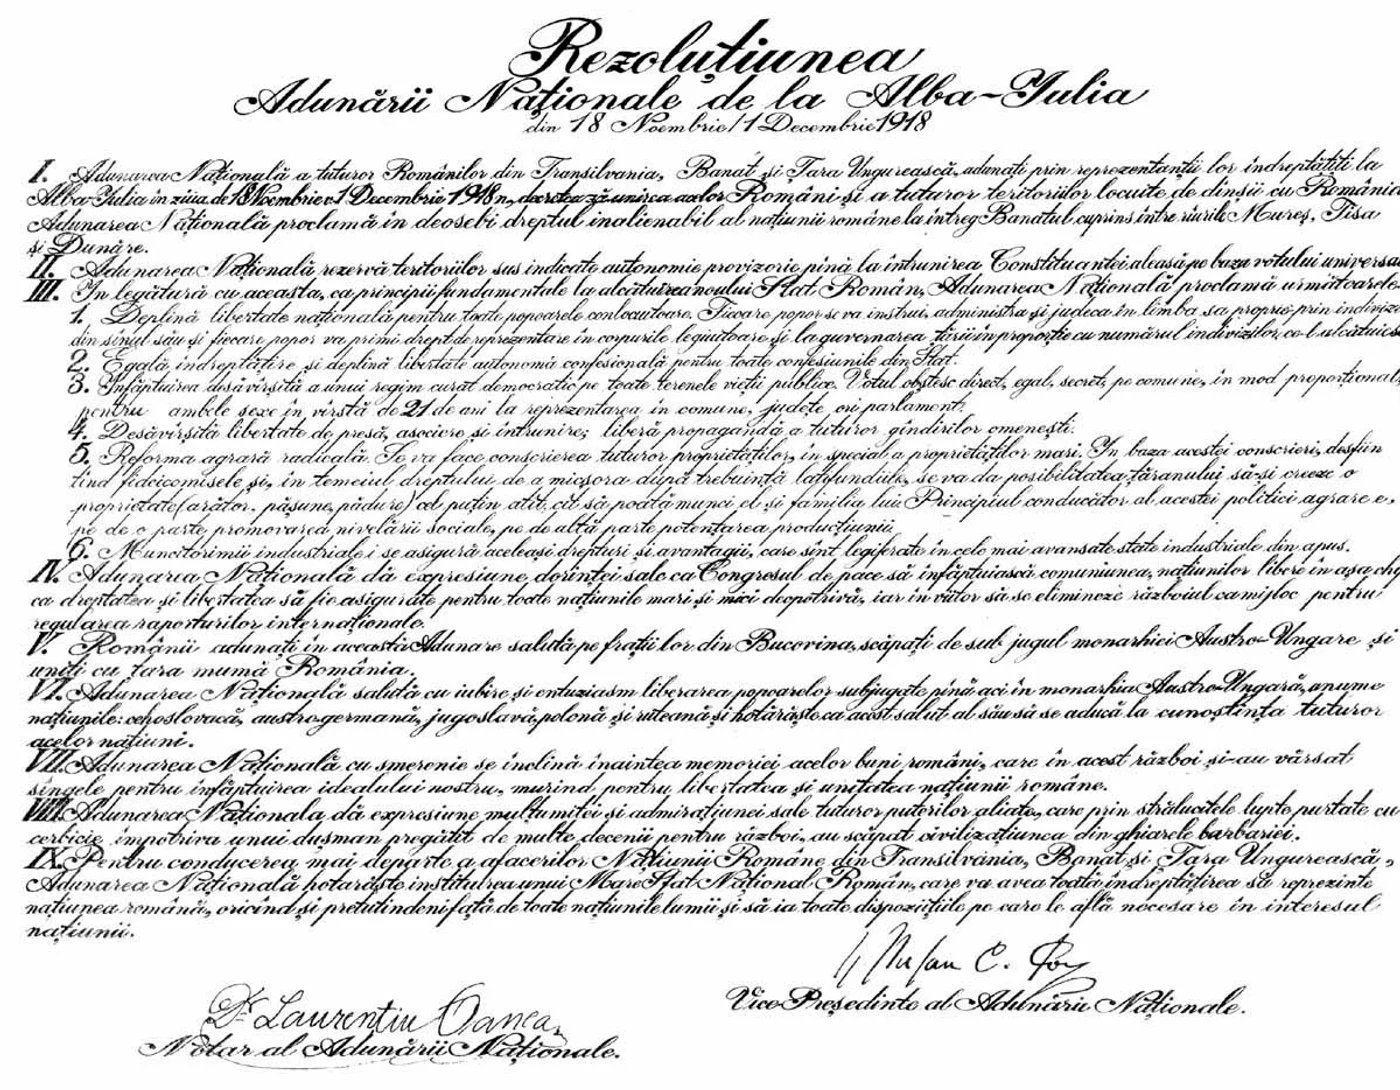 Rezoluțiunea
Adunării Naționale de la Alba-Iulia
din 18 Noembrie/1 Decembrie 1918
I. Adunarea Națională a tuturor Românilor din Transilvania, Banat și Țara Ungurească, adunați prin reprezentanții lor îndreptățiți la
Alba-Iulia în ziua de 18 Noembrie v. 1 Decembrie 1918 n, decretează unirea acelor Români și a tuturor teritoriilor locuite de dînșii cu România
Adunarea Națională proclamă în deosebi dreptul inalienabil al națiunii române la întreg Banatul cuprins între rîurile Mureș, Tisa
și Dunăre.
II. Adunarea Națională rezervă teritoriilor sus indicate autonomie provizorie pînă la întrunirea Constituantei aleasă pe baza votului universa
III. In legătură cu aceasta, ca principii fundamentale la alcătuirea noului Stat Român, Adunarea Națională proclamă următoarele
1. Deplină libertate națională pentru toate popoarele conlocuitoare. Fiecare popor se va instrui, administra și judeca în limba sa proprie prin indivizi
din sînul său și fiecare popor va primi drept de reprezentare în corpurile legiuitoare și la guvernarea țării în proporție cu numărul indivizilor ce-l alcătuiesc
2. Egală îndreptățire și deplină libertate autonomă confesională pentru toate confesiunile din Stat.
3. Infăptuirea desăvîrșită a unui regim curat democratic pe toate terenele vieții publice. Votul obștesc direct, egal, secret, pe comune, în mod proporțional,
pentru ambele sexe în vîrstă de 21 de ani la reprezentarea în comune, județe ori parlament.
4. Desăvîrșită libertate de presă, asociere și întrunire; liberă propagandă a tuturor gîndirilor omenești.
5. Reforma agrară radicală. Se va face conscrierea tuturor proprietăților, în special a proprietăților mari. In baza acestei conscrieri, desfiin
țînd fideicomisele și, în temeiul dreptului de a micșora după trebuință latifundiile, se va da posibilitatea țăranului să-și creeze o
proprietate (arător, pășune, pădure) cel puțin atît cît să poată munci el și familia lui. Principiul conducător al acestei politici agrare e.
pe de o parte promovarea nivelării sociale, pe de altă parte potențarea producțiunii
6. Muncitorimii industriale i se asigură aceleași drepturi și avantagii, care sînt legiferate în cele mai avansate state industriale din apus.
IV. Adunarea Națională dă expresiune dorinței sale ca Congresul de pace să înfăptuiască comuniunea națiunilor libere în așa chi
ca dreptatea și libertatea să fie asigurate pentru toate națiunile mari și mici deopotrivă, iar în viitor să se elimineze războiul ca mijloc pentru
regularea raporturilor internaționale.
V. Românii adunați în această Adunare salută pe frații lor din Bucovina, scăpați de sub jugul monarhiei Austro-Ungare și
uniți cu țara mumă România.
VI. Adunarea Națională salută cu iubire și entuziasm liberarea popoarelor subjugate pînă aci în monarhia Austro-Ungară, anume
națiunile: cehoslovacă, austro-germană, jugoslavă, polonă și ruteană și hotărăște ca acest salut al său să se aducă la cunoștința tuturor
acelor națiuni.
VII. Adunarea Națională cu smerenie se închină înaintea memoriei acelor buni români, care în acest război și-au vărsat
sîngele pentru înfăptuirea idealului nostru, murind pentru libertatea și unitatea națiunii române.
VIII. Adunarea Naționala, dă expresiune mulțumiței și admirațiunei sale tuturor puterilor aliate, care prin strălucitele lupte purtate cu
cerbicie împotriva unui dușman pregătit de multe decenii pentru război, au scăpat civilizațiunea din ghiarele barbariei.
IX. Pentru conducerea mai departe a afacerilor Națiunii Române din Transilvania, Banat și Țara Ungurească,
Adunarea Națională hotărăște instituirea unui Mare Sfat Național Român, care va avea toată îndreptățirea să reprezinte
națiunea română, oricînd și pretutindeni față de toate națiunile lumii și să ia toate dispozițiile pe care le află necesare în interesul
națiunii.
C. Pop
Vice-Președinte al Adunării Naționale.
Dr. Laurențiu Oanea,
Notar al Adunării Naționale.